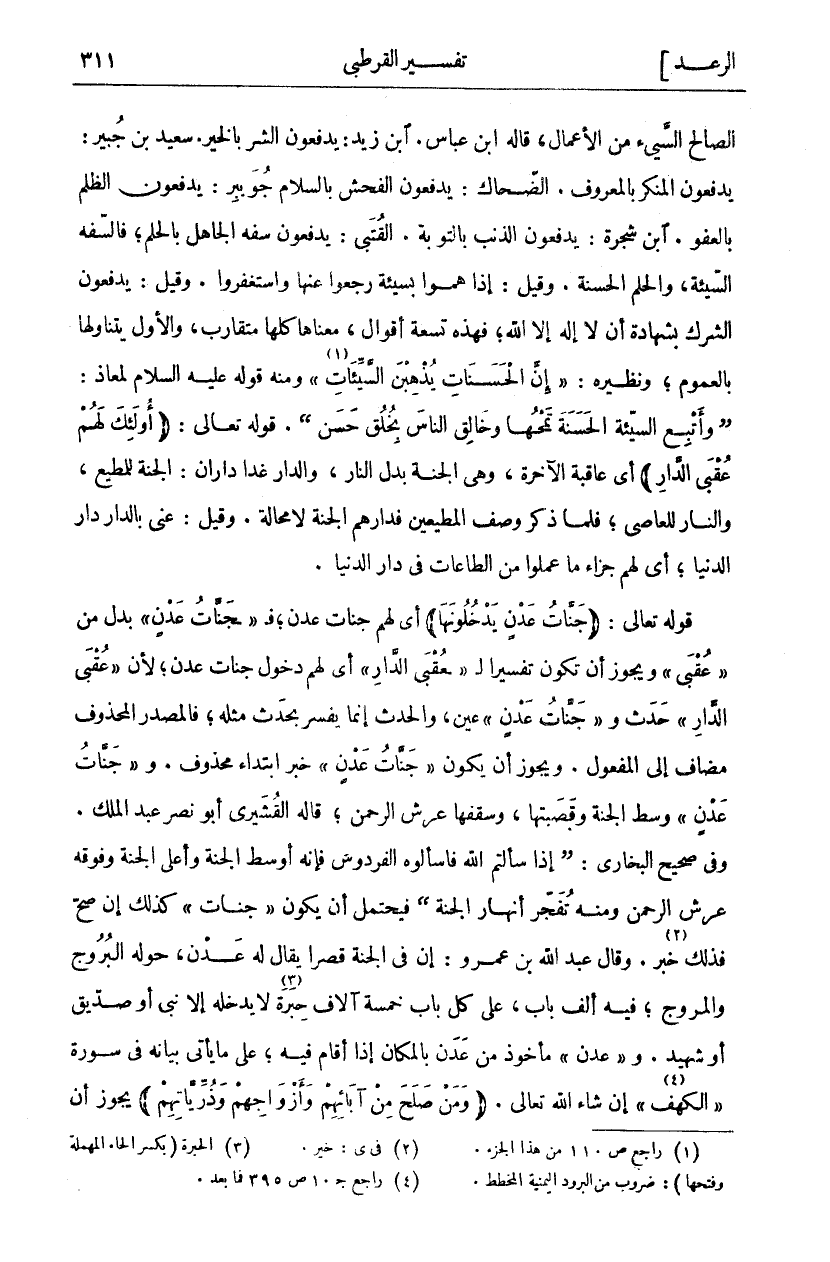 الرعد] تفسير القرطبى ٣١١
الصالح السَّيء من الأعمال، قاله ابن عباس. ٱبن زيد: يدفعون الشر بالخير. سعيد بن جُبير :
يدفعون المنكر بالمعروف . الضّحاك : يدفعون الفحش بالسلام جُوَيبِر : يدفعون الظلم
بالعفو . ٱبن شجرة : يدفعون الذنب بالتوبة . القُتَبى : يدفعون سفه الجاهل بالحلم؛ فالسّفه
السّيئة، والحلم الحسنة . وقيل : إذا همـوا بسيئة رجعوا عنها واستغفروا . وقيل : يدفعون
الشرك بشهادة أن لا إله إلا الله؛ فهذه تسعة أقوال ، معناها كلها متقارب، والأول يتناولها
بالعموم ؛ ونظيره : « إِنَّ الْحَسَنَاتِ يُذْهِبْنَ السَّيِّئَاتِ (١) » ومنه قوله عليه السلام لمعاذ :
” وأَتْبِع السيّئة الحَسَنَةَ تَمْحُها وخَالِق الناسَ بِخُلُق حَسَن “ . قوله تعالى : ﴿ أُولَئِكَ لَهُمْ
عُقْبَى الدَّارِ ﴾ أى عاقبة الآخرة ، وهى الجنة بدل النار ، والدار غدا داران : الجنة للمطيع ،
والنار للعاصى ؛ فلما ذكر وصف المطيعين فدارهم الجنة لامحالة . وقيل : عنى بالدار دار
الدنيا ؛ أى لهم جزاء ما عملوا من الطاعات فى دار الدنيا .
قوله تعالى : ﴿جَنَّاتُ عَدْنٍ يَدْخُلُونَهَا﴾ أى لهم جنات عدن ؛فـ « جَنَّاتُ عَدْنٍ» بدل من
« عُقْبَى » ويجوز أن تكون تفسيرا لـ « عُقْبَى الدَّارِ» أى لهم دخول جنات عدن؛ لأن «عُقْبَى
الدَّارِ » حَدَث و « جَنَّاتُ عَدْنٍ »عين، والحدث إنما يفسر بحدَث مثله؛ فالمصدر المحذوف
مضاف إلى المفعول . ويجوز أن يكون « جَنَّاتُ عَدْنٍ » خبر ابتداء محذوف . و « جَنَّاتُ
عَدْنٍ » وسط الجنة وقَصَبتها ، وسقفها عرش الرحمن ؛ قاله القُشَيرى أبو نصر عبد الملك .
وفى صحيح البخارى : ” إذا سألتم الله فاسألوه الفردوس فإنه أوسط الجنة وأعلى الجنة وفوقه
عرش الرحمن ومنه تُفَجّر أنهار الجنة “ فيحتمل أن يكون « جنات » كذلك إن صحّ
فذلك خبر (٢) . وقال عبد الله بن عمرو : إن فى الجنة قصرا يقال له عَدْن، حوله البُرُوج
والمروج ؛ فيه ألف باب ، على كل باب خمسة آلاف حِبَرَة (٣) لا يدخله إلا نبى أو صدّيق
أو شهيد . و « عدن » مأخوذ من عَدَن بالمكان إذا أقام فيه ؛ على ما يأتى بيانه فى سورة
« الكهف (٤) » إن شاء الله تعالى . ﴿ وَمَنْ صَلَحَ مِنْ آبَائِهِمْ وَأَزْوَاجِهِمْ وَذُرِّيَّاتِهِمْ ﴾ يجوز أن
(١) راجع ص ١١٠ من هذا الجزء . (٢) فى ى : خير . (٣) الحبرة (بكسر الحاء المهملة
وفتحها) : ضروب من البرود اليمنية المخطط . (٤) راجع جـ ١٠ ص ٣٩٥ فما بعد .